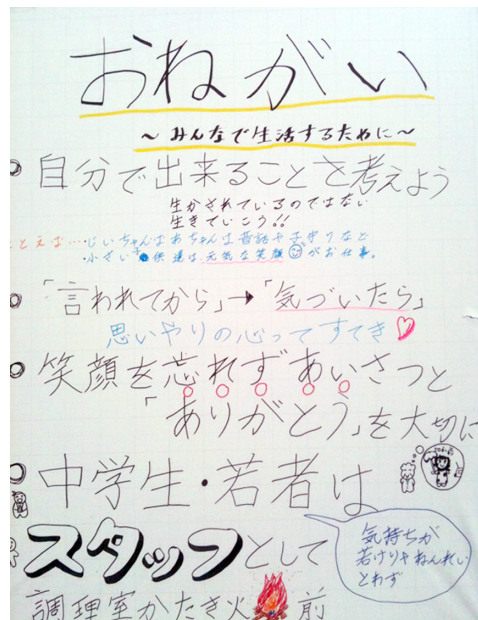 おねがい
～みんなで生活するために～
○自分で出来ることを考えよう
生かされているのではない
生きていこう!!
とえば…・じいちゃんばあちゃんは昔話や子守りなど
・小さい子供達は元気な笑顔がお仕事。
○「言われてから」→「気づいたら」
思いやりの心ってすてき♡
○笑顔を忘れずあいさつと
「ありがとう」を大切に
○中学生・若者は
スタッフとして
気持ちが
若けりゃねんれい
とわず
調理室かたき火前